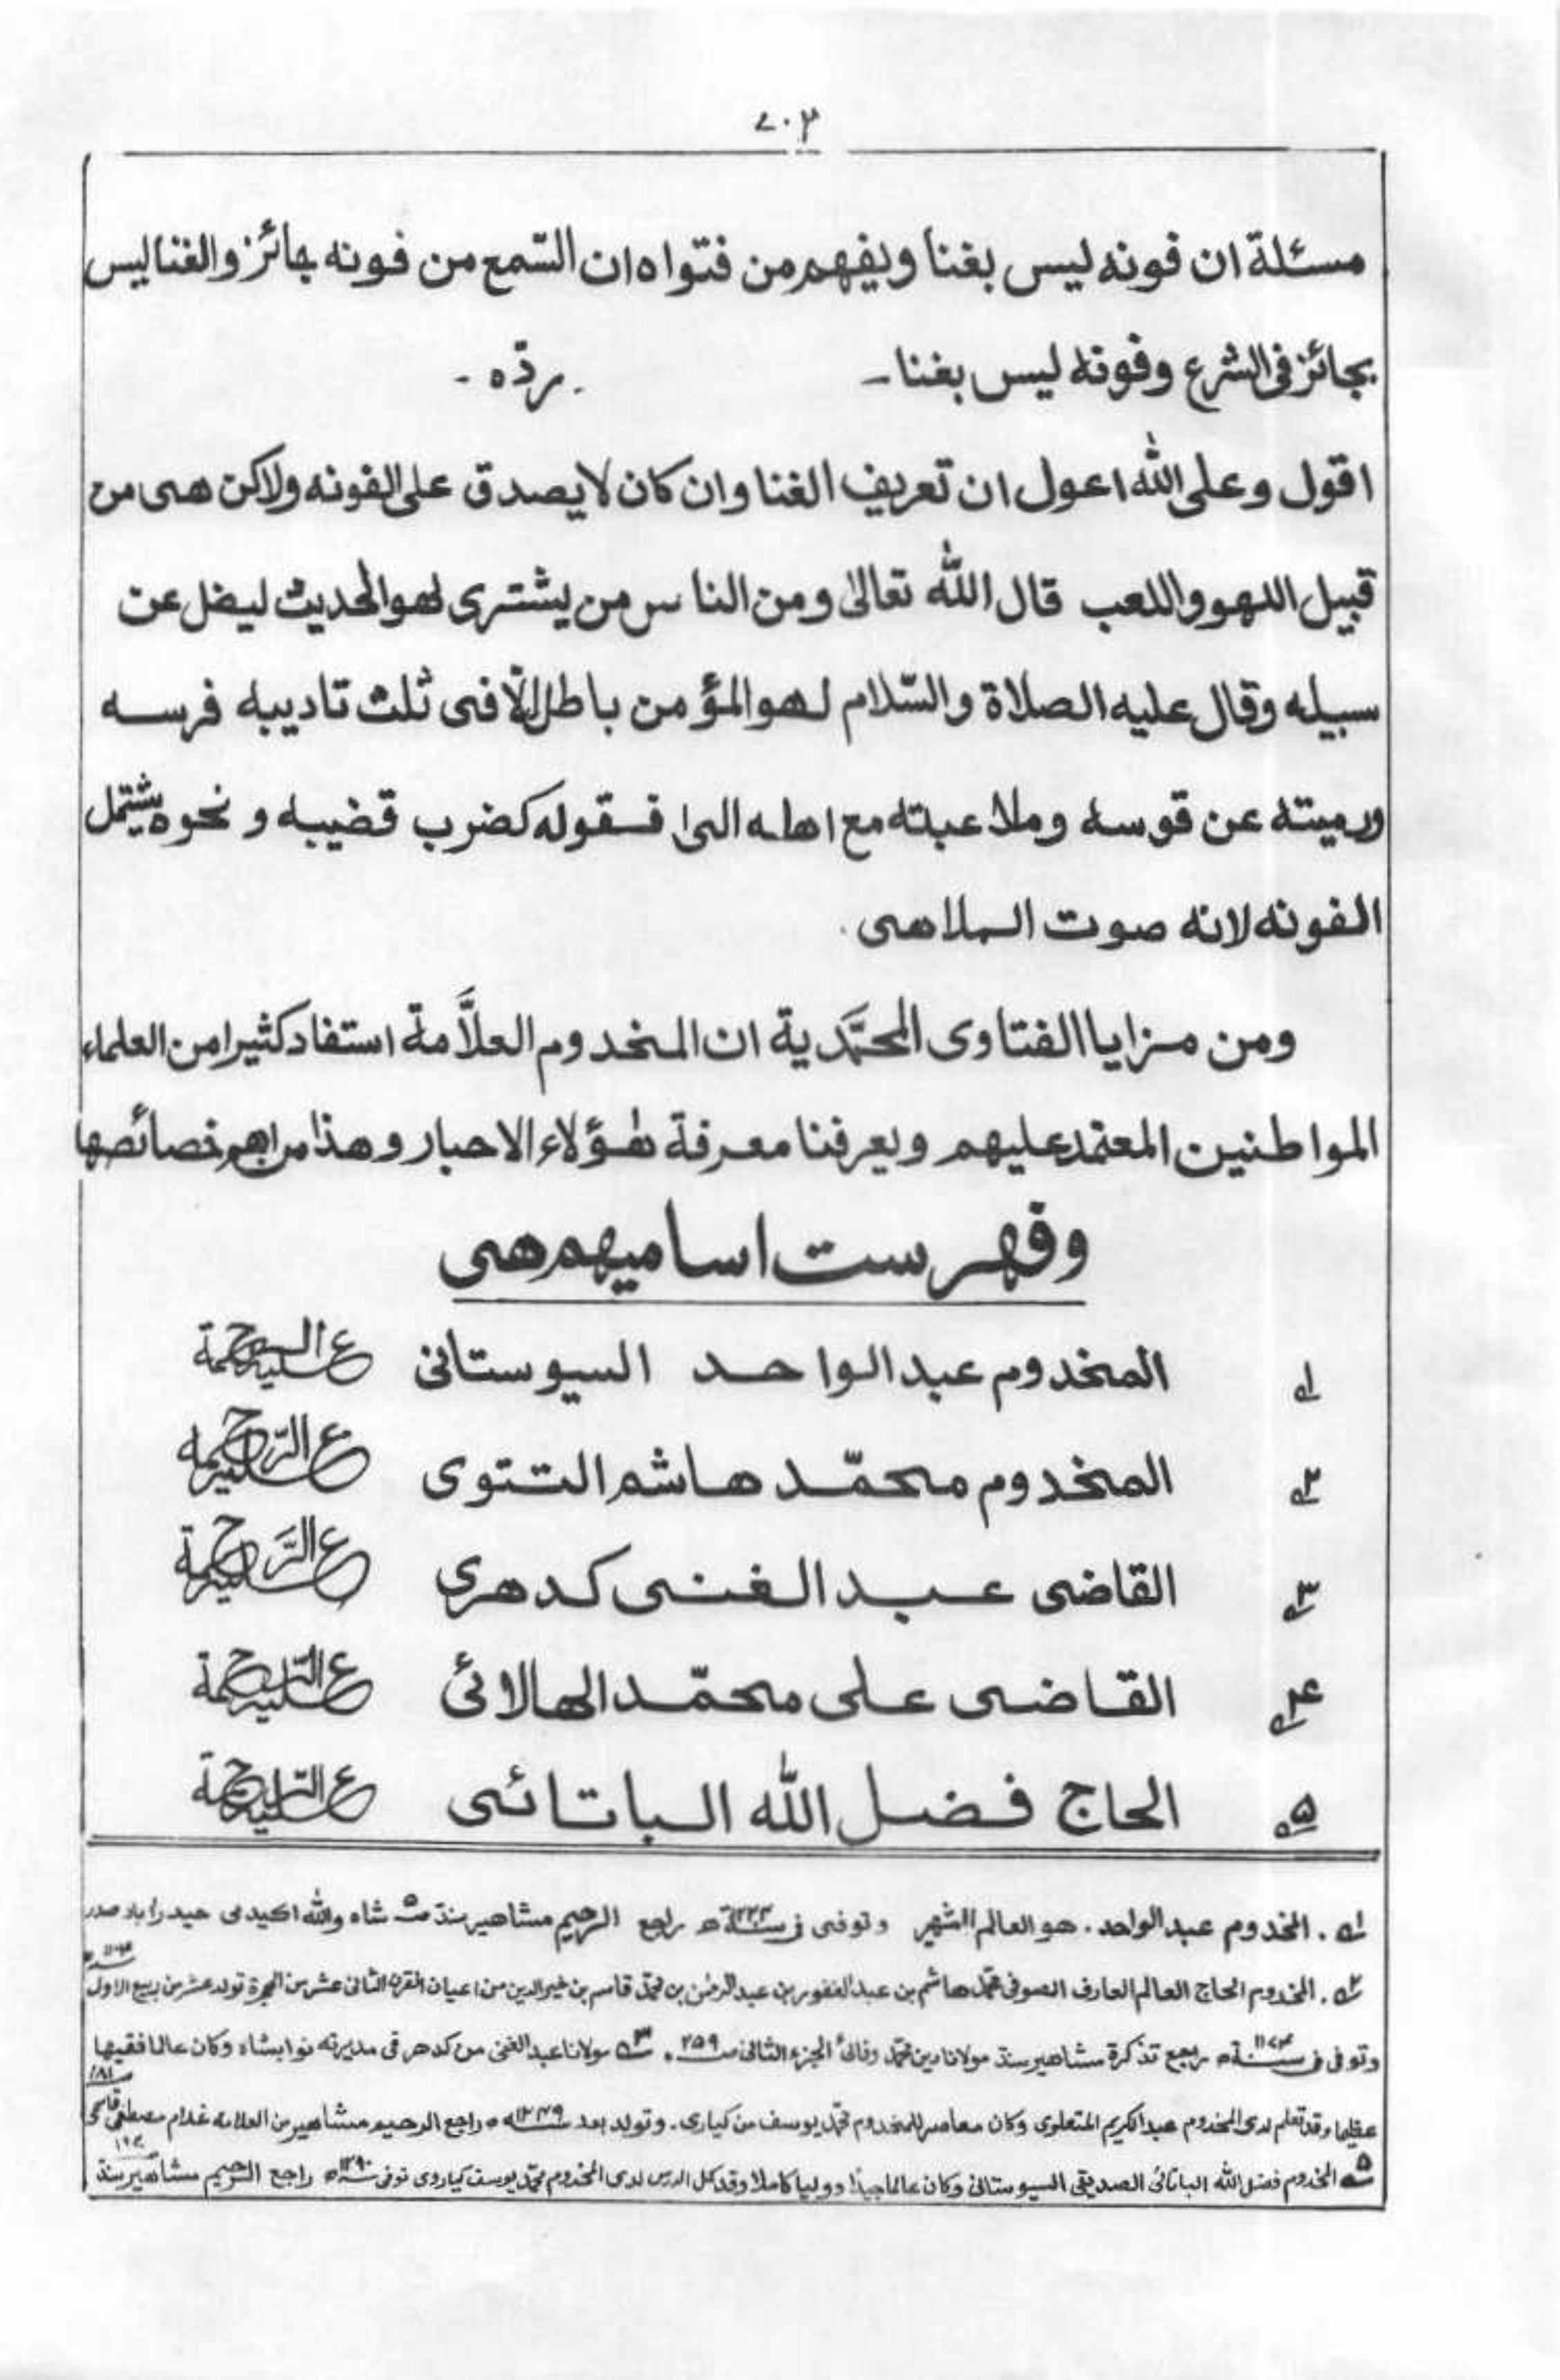 ٧٠٢
مسئلة ان فونه ليس بغنا ويفهم من فتواه ان السّمع من فونه جائز والغنا ليس
بجائز فى الشرع وفونه ليس بغنا ـ . ردّه .
اقول وعلى الله اعول ان تعريف الغنا وان كان لا يصدق على الفونه ولاكن هى من
قبيل اللهو واللعب قال الله تعالىٰ ومن الناس من يشترى لهو الحديث ليضل عن
سبيله وقال عليه الصلاة والسّلام لهو المؤمن باطل الّا فى ثلث تاديبه فرسه
ورميته عن قوسه وملاعبته مع اهله الى فقوله كضرب قضيبه و نحوه يشتمل
الفونه لانه صوت الملاهى .
ومن مزايا الفتاوى المحمَّدية ان المخدوم العلاَّمة استفاد كثيرا من العلماء
المواطنين المعتمد عليهم ويعرفنا معرفة هؤلاء الاحبار وهذا من اهم خصائصها
وفهرست اساميهم هى
١ المخدوم عبد الواحد السيوستانى عليه الرحمة
٢ المخدوم محمّد هاشم التتوى عليه الرّحمه
٣ القاضى عبد الغنى كدهرى عليه الرَّحمة
٤ القاضى على محمّد الهالائى عليه الرّحمة
٥ الحاج فضل الله الباتائى عليه الرّحمة
١ . المخدوم عبد الواحد . هو العالم الشهير وتوفى فى ١٢٢٤ﻫ راجع الرحيم مشاهير سنڌ ص٥ شاه والله اكيدمى حيدراباد صدر
٢ . المخدوم الحاج العالم العارف الصوفى محمّد هاشم بن عبد الغفور بن عبد الرحمٰن بن محمّد قاسم بن خير الدين من اعيان القرن الثانى عشر من الهجرة تولد عشر من ربيع الاول
وتوفى فى سنة ١١٧٤ﻫ رجع تذكرة مشاهير سنڌ مولانا دين محمّد وفائى الجزء الثانى ص ٢٥٩ . ٣ مولانا عبد الغنى من كدهر فى مديرته نوابشاه وكان عالما فقيها
عظيما وقد تعلم لدى المخدوم عبد الكريم المتعلوى وكان معاصر للمخدوم محمّد يوسف من كيارى . وتولد بعد ١٢٤٩ﻫ راجع الرحيم مشاهير من العلامه غلام مصطفىٰ قاسمى ١٨١
٥ المخدوم فضل الله الباتائى الصديقى السيوستانى وكان عالما جيدا ووليا كاملا وقد كمل الدرس لدى المخدوم محمّد يوسف كياروى توفى ١٢٩٠ﻫ راجع الرحيم مشاهير سنڌ